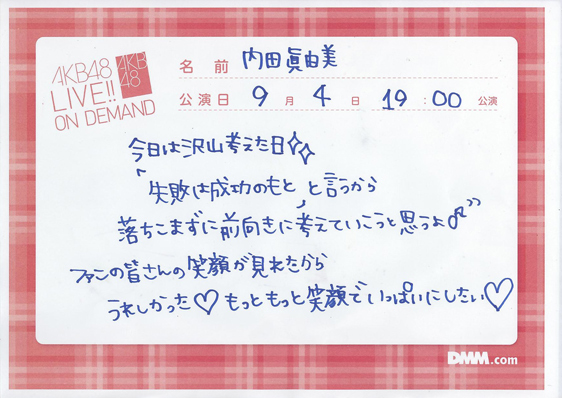 AKB48
LIVE!!
ON DEMAND
AKB
48
名前 内田眞由美
公演日 9月4日 19:00公演
今日は沢山考えた日
「失敗は成功のもと」と言うから
落ちこまずに前向きに考えていこうと思うよ♪"
ファンの皆さんの笑顔が見れたから
うれしかった♡もっともっと笑顔でいっぱいにしたい♡
DMM.com